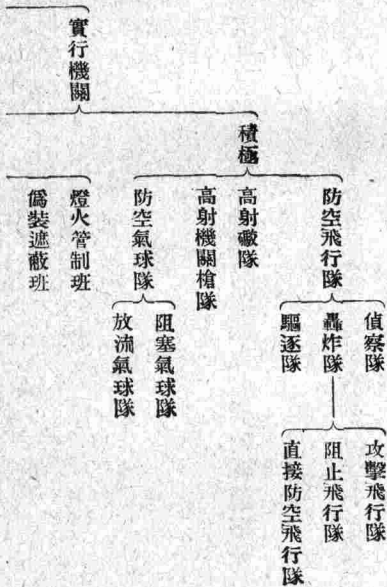 實行機關
積極
防空飛行隊
偵察隊
轟炸隊
攻擊飛行隊
阻止飛行隊
直接防空飛行隊
驅逐隊
高射礮隊
高射機關槍隊
防空氣球隊
阻塞氣球隊
放流氣球隊
燈火管制班
僞裝遮蔽班